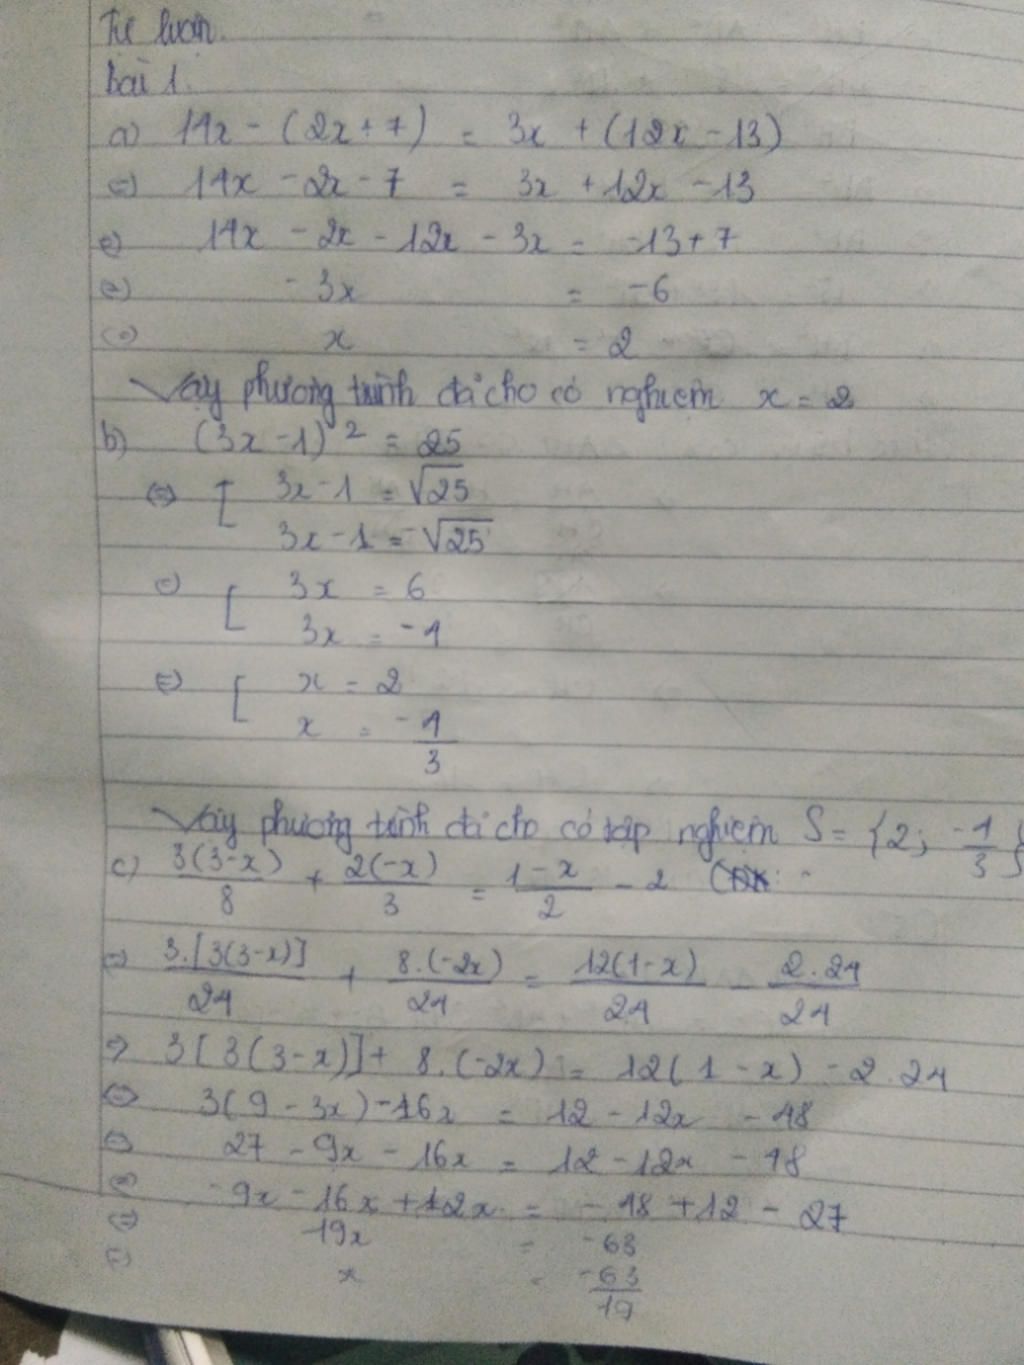 Tự luận.
bài 1.
a) 14x - (2x + 7) = 3x + (12x - 13)
(=) 14x - 2x - 7 = 3x + 12x - 13
(=) 14x - 2x - 12x - 3x = -13 + 7
(=) -3x = -6
(=) x = 2
Vậy phương trình đã cho có nghiệm x = 2
b) (3x - 1)² = 25
(=) [ 3x - 1 = √25
3x - 1 = -√25
(=) [ 3x = 6
3x = -4
(=) [ x = 2
x = -4/3
Vậy phương trình đã cho có tập nghiệm S = {2; -4/3}
c) 3(3-x)/8 + 2(-x)/3 = 1-x/2 - 2
(=) 3.[3(3-x)]/24 + 8.(-2x)/24 = 12(1-x)/24 - 2.24/24
=> 3[3(3-x)] + 8.(-2x) = 12(1 - x) - 2.24
(=) 3(9 - 3x) - 16x = 12 - 12x - 48
(=) 27 - 9x - 16x = 12 - 12x - 48
(=) -9x - 16x + 12x = -48 + 12 - 27
(=) 19x = -63
(=) x = -63/19